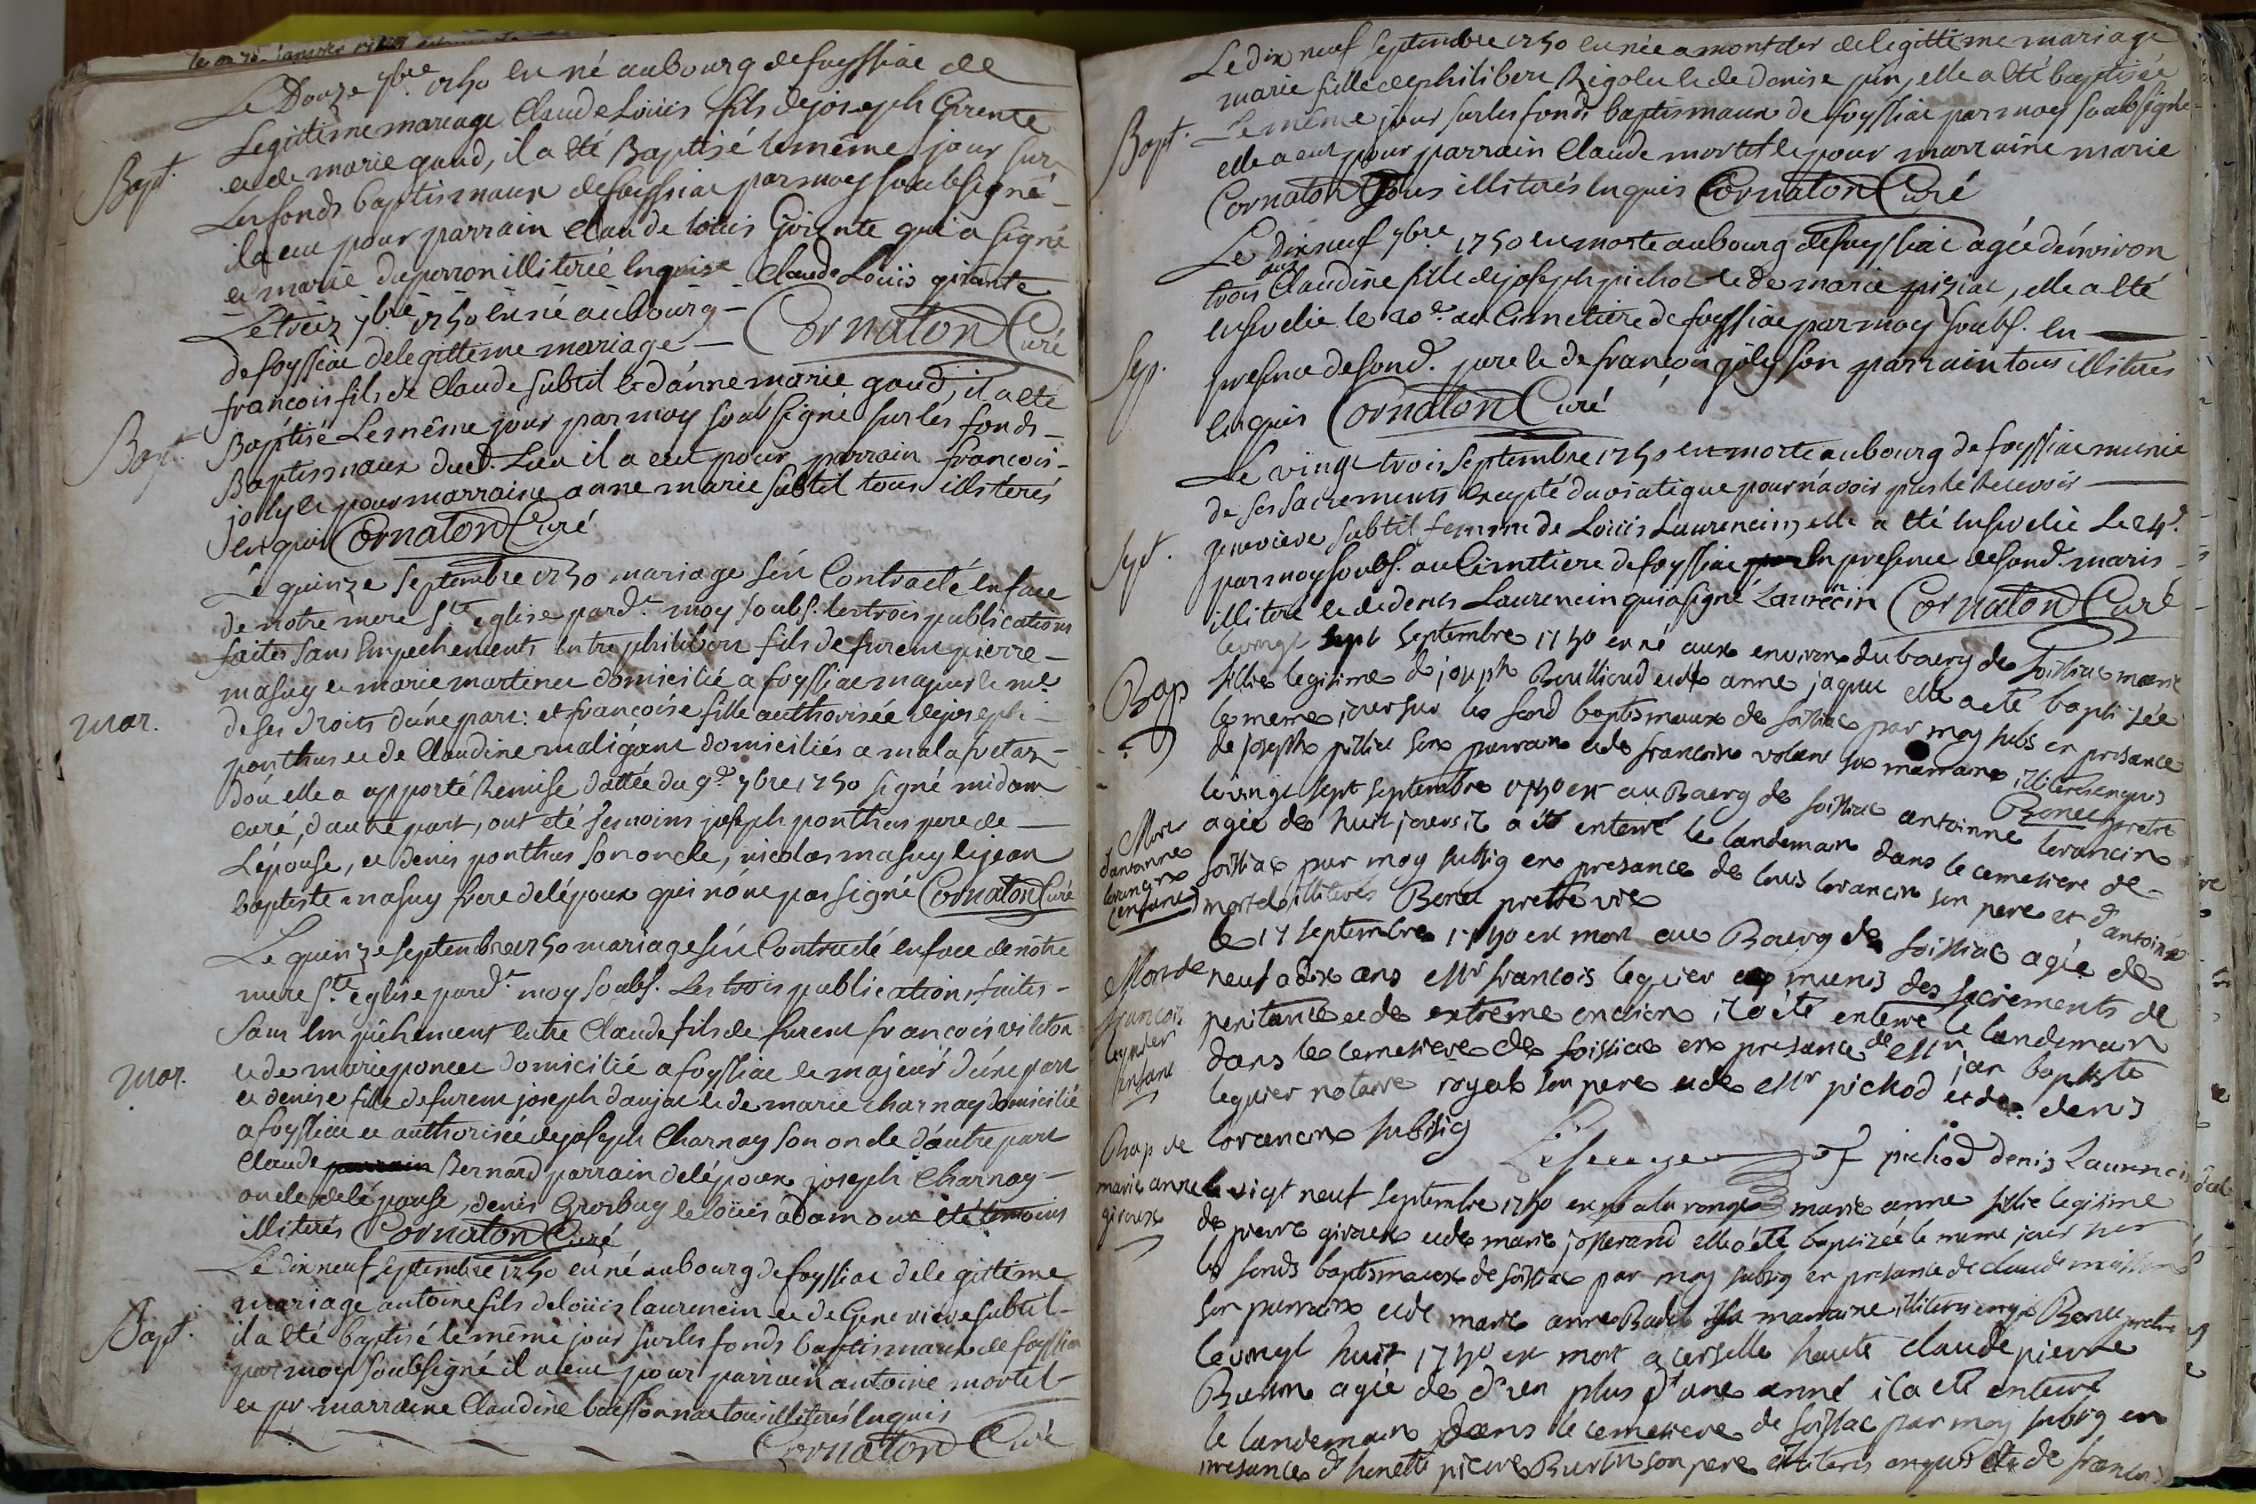 Le Douze 7bre 1750 est né au bourg de foyssiac de
Legittime mariage Claude Loüis fils de joseph Girente
et de marie gaud, il a été Baptisé le même jour sur
Les fonds baptismaux de foyssiac par moy soubsigné
il a eu pour parrain Claude loüis Girente qui a signé
et marie duperron illiterée enquise Claude Loüis girante
Bapt.
Le treiz 7bre 1750 est né au bourg
Cornaton Curé
de foyssiac de legittime mariage
françois fils de Claude subtil et d'anne marie gaud, il a été
Baptisé Le même jour par moy soubsigné sur les fonds
Baptismaux dud. Lieu il a eu pour parrain françois
joly et pour marraine anne marie subtil tous illiterés
enquis Cornaton Curé
Bapt.
Le quinze septembre 1750 mariage s'est Contracté en face
de notre mere Ste église pard.t moy soubs. les trois publications
faites sans Empechements entre philibert fils de furent pierre
masuy et marie martinet domicilié a foyssiac majeur et me
de ses droits d'une part: et francoise fille authorisée de joseph
ponthus et de Claudine maligant domiciliés a malafretaz
d'ou elle a apporté Remise dattée du 9e 7bre 1750 signé midan
curé, d'autre part, ont été temoins joseph ponthus pere de
L'épouse, et denis ponthus son oncle, nicolas masuy et jean
baptiste masuy frere de l'époux qui n'ont pas signé Cornaton Curé
mar.
Le quinze septembre 1750 mariage s'est Contracté en face de nôtre
mere Ste église pard.t moy soubs. Les trois publications faites
sans Empêchement entre Claude fils de furent françois villeton
et de marie poncet domicilié a foyssiac et majeur d'une part
et denise fille de furent joseph danjat et de marie charnay domicilié
a foyssiac et authorisée de joseph Charnay son oncle d'autre part
Claude Bernard parrain de l'époux joseph Charnay
oncle de l'épouse, denis Grosbuy et loüis adam ont été temoins
illiterés Cornaton Curé
mar.
Le dix neuf septembre 1750 est né au bourg de foyssiac de legittime
mariage antoine fils de loüis laurencin et de Genevieve subtil
il a été baptisé le même jour sur les fonds baptismaux de foyssiac
par moy soubsigné il a eu pour parrain antoine mortel
et pr marraine Claudine boissonnat tous illiterés enquis
Cornaton Curé
Bapt.
Le dix neuf septembre 1750 est née a montder de legittime mariage
marie fille de philibert Rigolet et de denise pin, elle a été baptisée
Le même jour sur les fonds baptismaux de foyssiac par moy soubsigné
elle a eu pour parrain Claude mortel et pour marraine marie
Cornaton Tous illiterés enquis Cornaton Curé
Bapt.
Le dixneuf 7bre 1750 est morte au bourg de foyssiac agée d'environ
trois ans Claudine fille de joseph pichot et de marie piziat, elle a été
ensevelie le 20e au Cimetiere de foyssiac par moy soubs. en
presence de sond. pere et de françois joly son parrain tous illiteres
enquis Cornaton Curé
Sep.
Le vingt trois septembre 1750 est morte au bourg de foyssiac munie
de ses sacrements Excepté du viatique pour n'avoir pu le Recevoir
genevieve subtil femme de Loüis Laurencin, elle a été ensevelie Le 24e
par moy soubs. au Cimetiere de foyssiac en presence de sond. maris
illiteré et de denis Laurencin qui a signé Laurecin Cornaton Curé
Sept.
le vingt sept septembre 1750 est né aux environ du bourg de foissiac marie
fillie legitime de joseph Boullioud et de anne jaquet elle a eté baptisée
le meme jour sur les fond baptismaux de foissiac par moy subs en presance
de joseph pilliet son parrain et de francoise volant sa marraine illiteres enquis
Bonet pretre
Bap
le vingt sept septembre 1750 est au Bourg de foissiac antoinne lorancin
agée de huit jours il a été enterré le landemain dans le cemetiere de
foissiac par moy subsig en presance de louis lorancin son pere et d'antoine
mortel illiteres Bonet prettre vic
Mort
d'antoinne
lorancin
enfant
le 17 septembre 1750 est mort au Bourg de foissiac agée de
neuf a dix ans Mr francois lequier munis des sacrements de
penitance et de extreme onction il a été enterré le landemain
dans le cemetiere de foissiac en presance de Mr jan baptiste
lequier notaire royal son pere et de Mr pichod et de denis
lorancin subsig
pichod denis Laurencin
Mort de
francois
lequier
enfant
le vigt neuf septembre 1750 est marie anne fillie legitime
de pierre giroux et de marie josserand elle a été baptizée le meme jour sur
les fonds baptismaux de foissiac par moy subsig en presance de claude
son parrain et de marie anne sa marraine illiteres enquis Bonet pretre
Bap de
marie anne
giroux
le vingt huit 1750 est mort a cerselle haute claude pierre
Burtin agée de d'un plus d'une anné il a eté enterré
le landemain dans le cemetiere de foissiac par moy subsig en
presance d' pierre Burtin son pere illiteres enquis et de francois